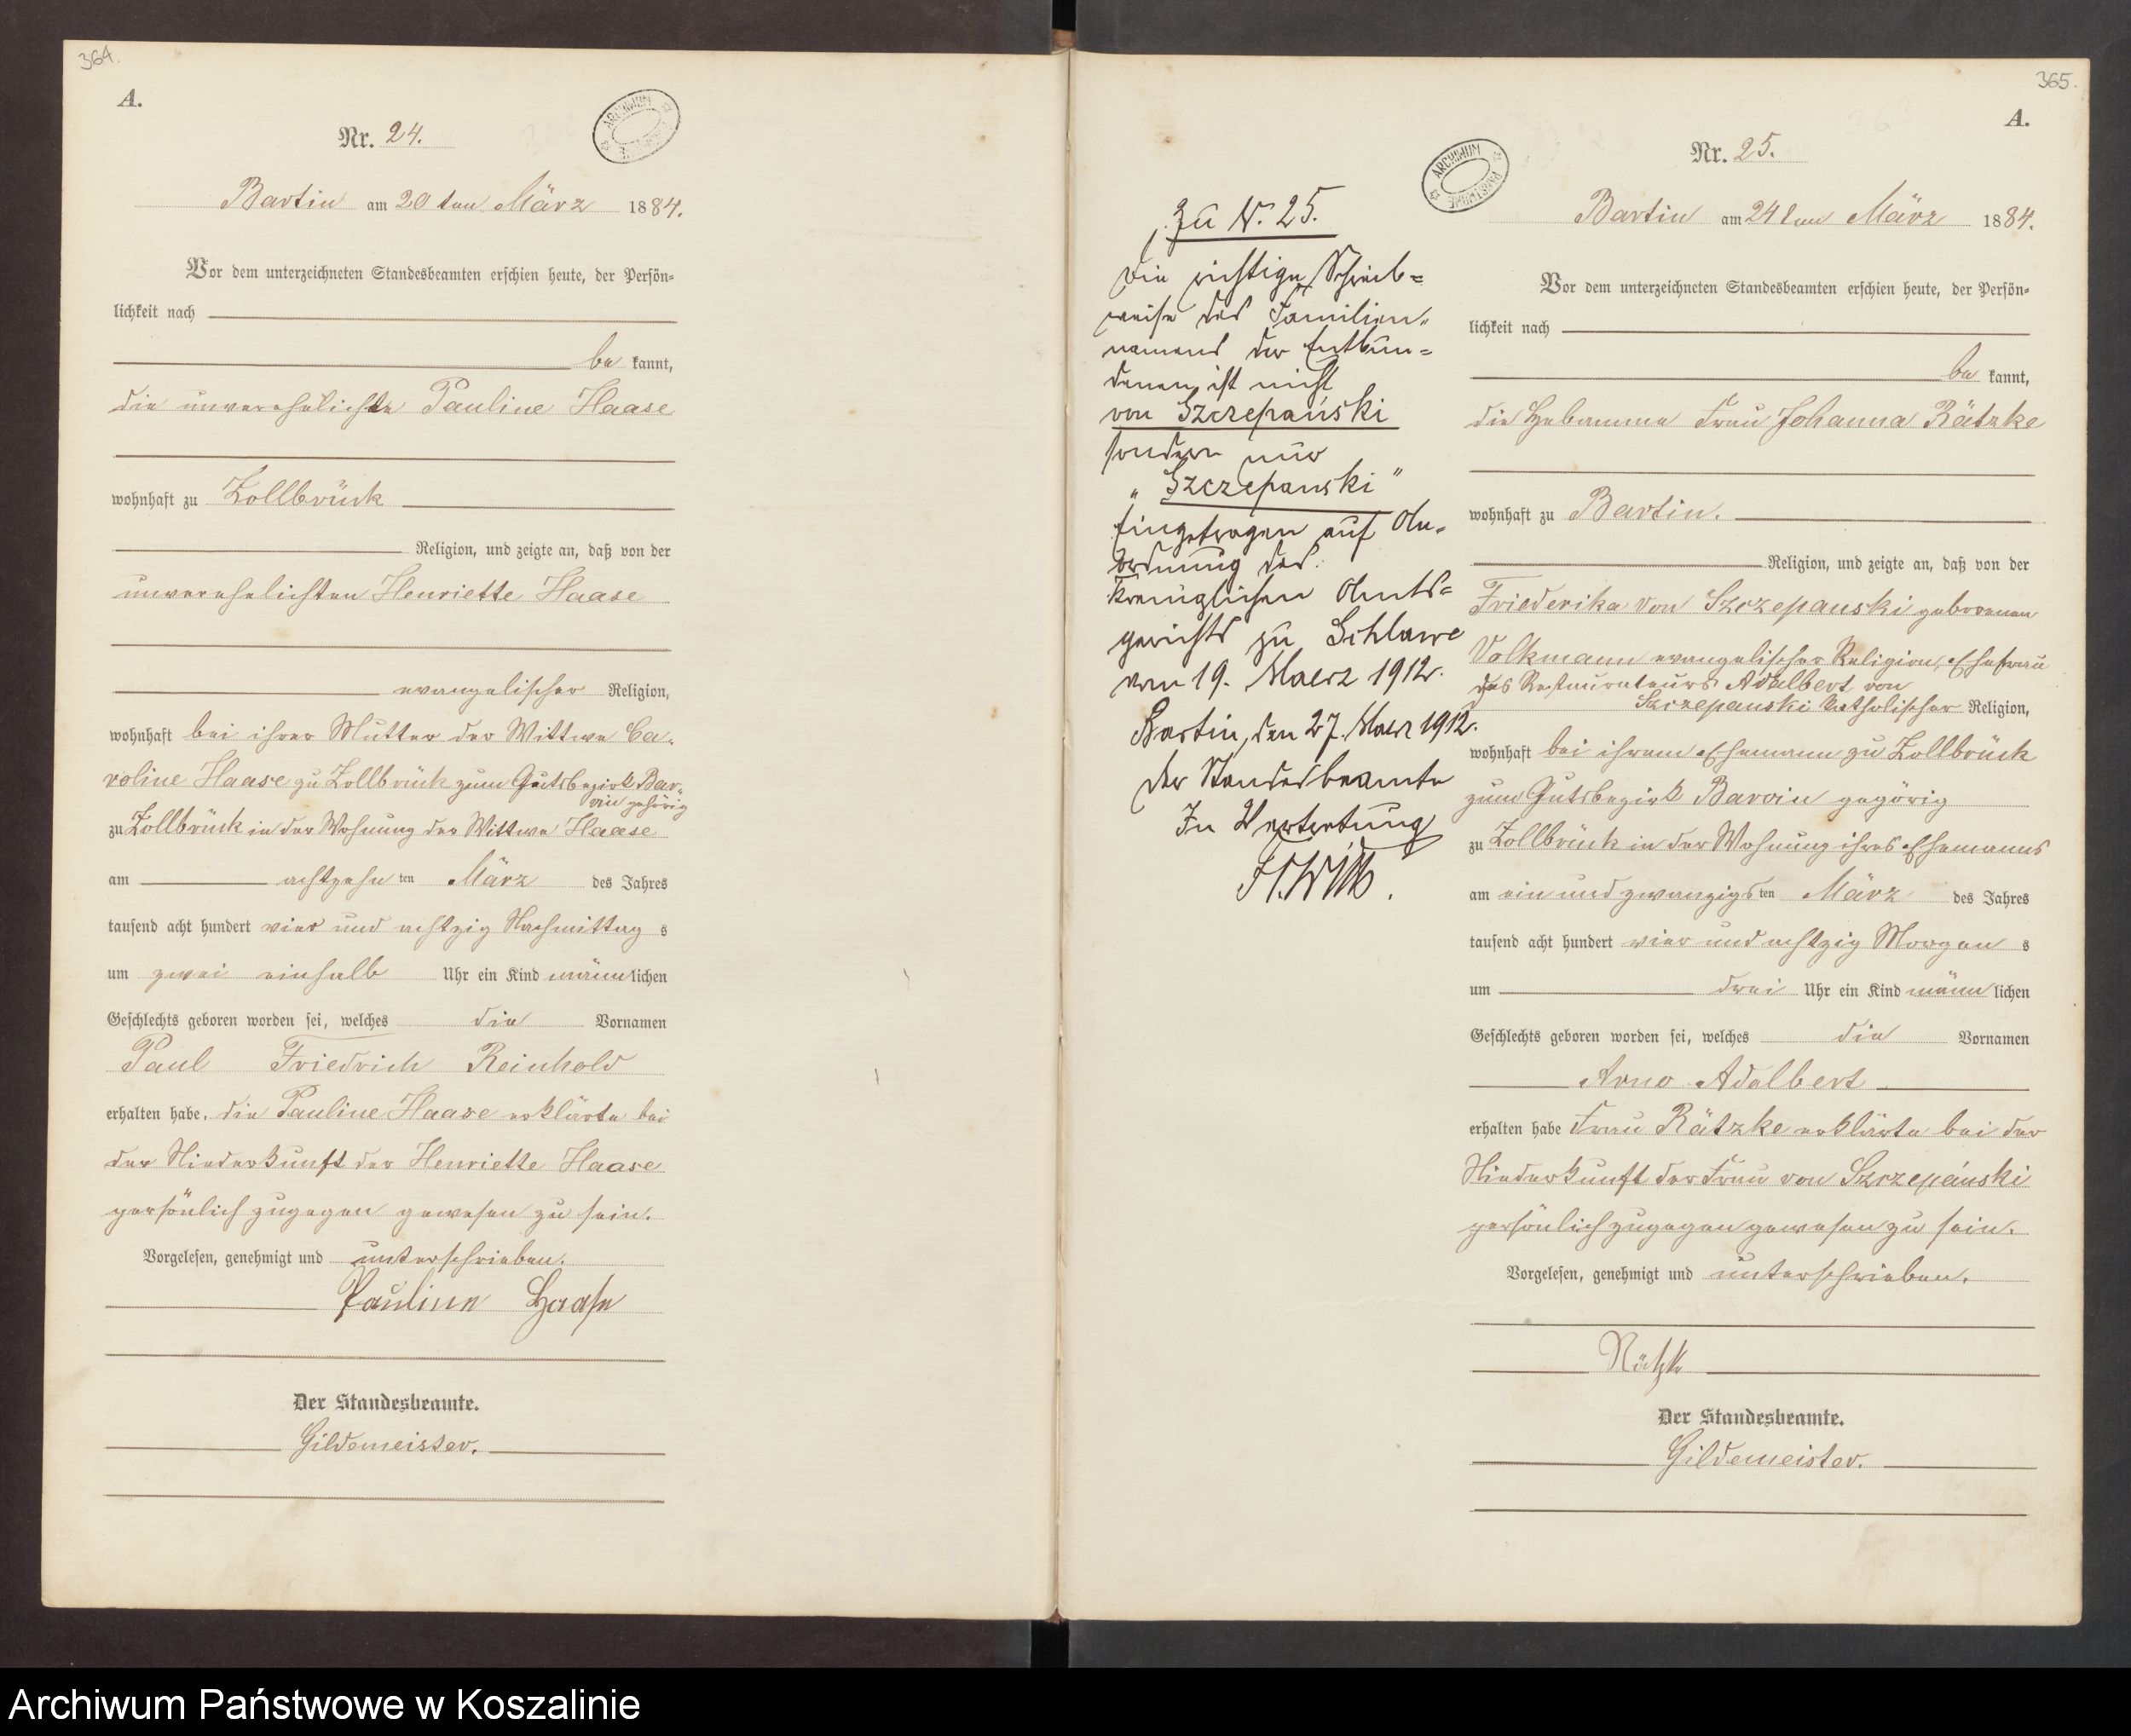 364.
A.
Nr. 24.
ARCHIWUM
Bartin am 20 ten März 1884.
Vor dem unterzeichneten Standesbeamten erschien heute, der Persön-
lichkeit nach
be kannt,
die unverehelichte Pauline Haase
wohnhaft zu Zollbrück
Religion, und zeigte an, daß von der
unverehelichten Henriette Haase
evangelischer Religion,
wohnhaft bei ihrer Mutter der Wittwe Ca-
roline Haase zu Zollbrück zum Gutsbezirk Bar-
vin gehörig
zu Zollbrück in der Wohnung der Wittwe Haase
am achtzehn ten März des Jahres
tausend acht hundert vier und achtzig Nachmittag s
um zwei einhalb Uhr ein Kind männ lichen
Geschlechts geboren worden sei, welches die Vornamen
Paul Friedrich Reinhold
erhalten habe. die Pauline Haase erklärte bei
der Niederkunft der Henriette Haase
persönlich zugegen gewesen zu sein.
Vorgelesen, genehmigt und unterschrieben.
Pauline Haase
Der Standesbeamte.
Gildemeister.
365.
A.
Nr. 25.
ARCHIWUM PAŃSTWOWE
Zu N. 25.
Die richtige Schreib=
weise des Familien-
namens der Entbun=
denen ist nicht
von Szczepański
sondern nur
„Szczepanski"
Eingetragen auf An-
ordnung des
Koeniglichen Amts=
gerichts zu Schlawe
vom 19. Maerz 1912.
Bartin, den 27. Maerz 1912.
Der Standesbeamte
In Vertretung
Bartin am 24 ten März 1884.
Vor dem unterzeichneten Standesbeamten erschien heute, der Persön-
lichkeit nach
be kannt,
die Hebamme Frau Johanna Rätzke
wohnhaft zu Bartin.
Religion, und zeigte an, daß von der
Friederika von Szczepanski geborenen
Volkmann evangelischer Religion, Ehefrau
des Restaurateurs Adalbert von
Szczepanski katholischer Religion,
wohnhaft bei ihrem Ehemann zu Zollbrück
zum Gutsbezirk Barvin gegörig
zu Zollbrück in der Wohnung ihres Ehemanns
am ein und zwanzigs ten März des Jahres
tausend acht hundert vier und achtzig Morgen s
um drei Uhr ein Kind männ lichen
Geschlechts geboren worden sei, welches die Vornamen
Arno Adalbert
erhalten habe Frau Rätzke erklärte bei der
Niederkunft der Frau von Szczepański
persönlich zugegen gewesen zu sein.
Vorgelesen, genehmigt und unterschrieben.
Rätzke
Der Standesbeamte.
Gildemeister.
Archiwum Państwowe w Koszalinie